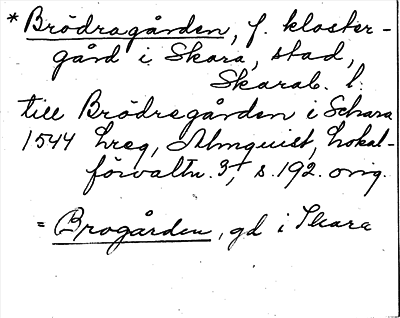 * Brödragården, f. kloster-
gård i Skara, stad,
Skarab. l.
till Brödregården i Schara
1544 hreg, Almquist, Lokal-
förvaltn. 3, s. 192. orig.
= Brogården, gd i Skara